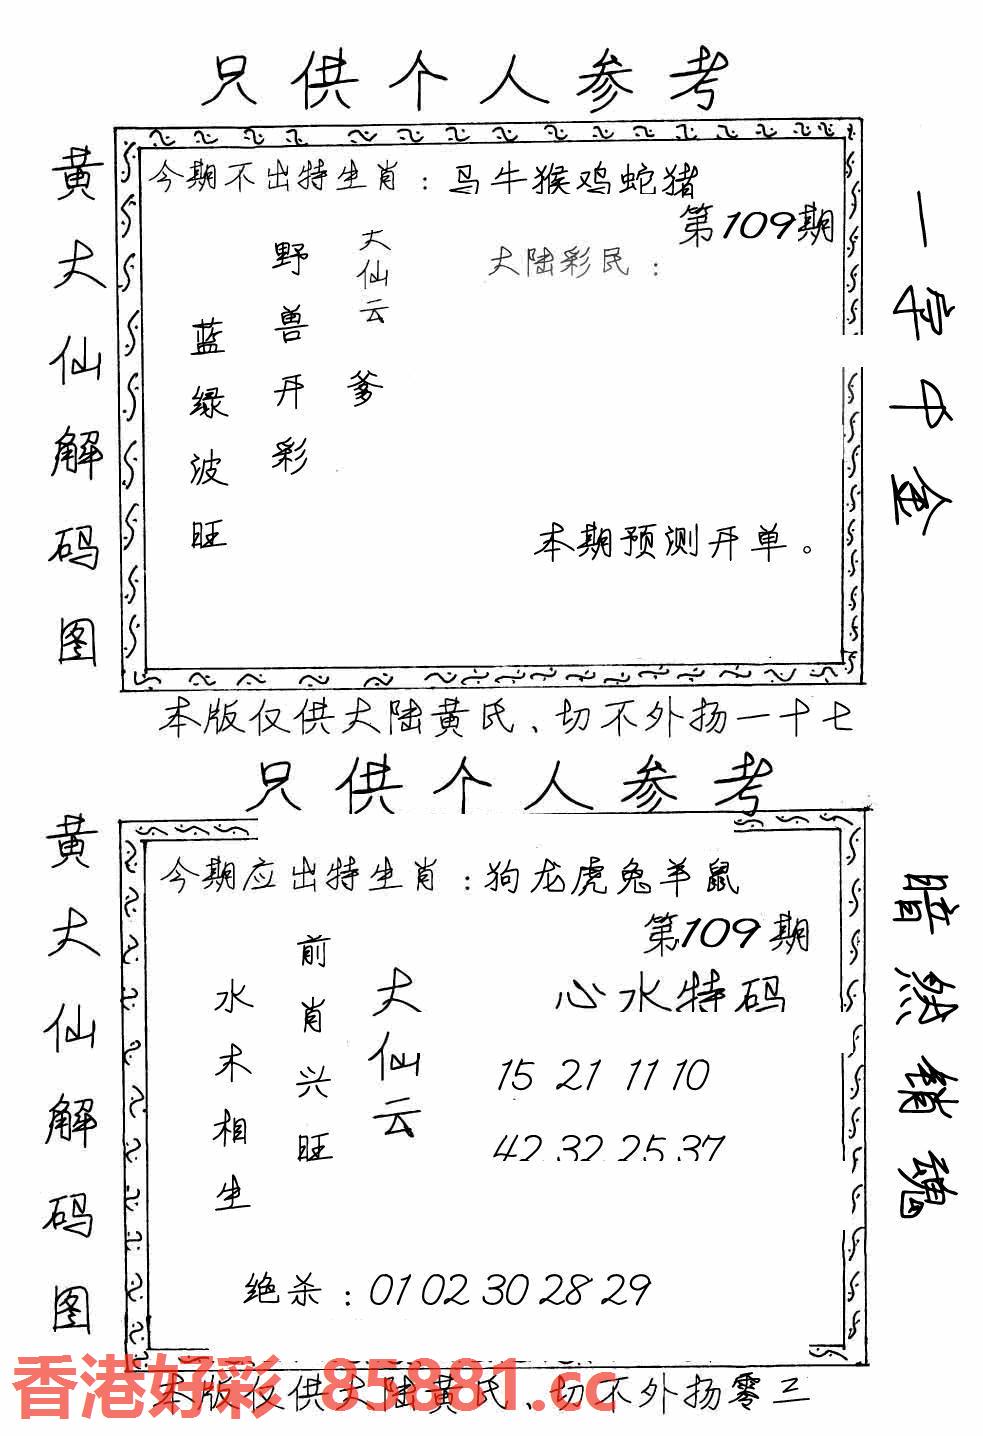 只供个人参考
黄大仙解码图
今期不出特生肖：马牛猴鸡蛇猪
第109期
大仙云
爹
野兽开彩
蓝绿波旺
大陆彩民：
本期预测开单。
一字中金
本版仅供大陆黄氏、切不外扬一十七
只供个人参考
黄大仙解码图
今期应出特生肖：狗龙虎兔羊鼠
第109期
大仙云
前肖兴旺
水木相生
心水特码
15 21 11 10
42 32 25 37
绝杀：01 02 30 28 29
暗然销魂
本版仅供大陆黄氏、切不外扬零三
香港好彩 85881.cc